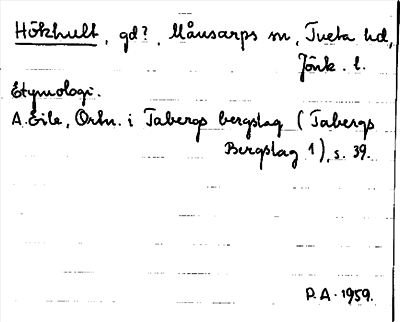 Hökhult, gd?, Månsarps sn, Tveta hd,
Jönk. l.
Etymologi.
A. Eile, Ortn. i Tabergs bergslag (Tabergs
Bergslag 1), s. 39.
P.A. 1959.